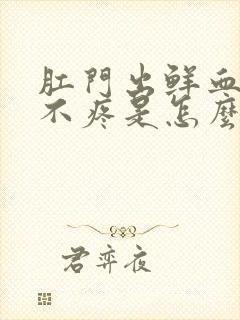 肛門出鮮血
不疼是怎麼
君弈夜